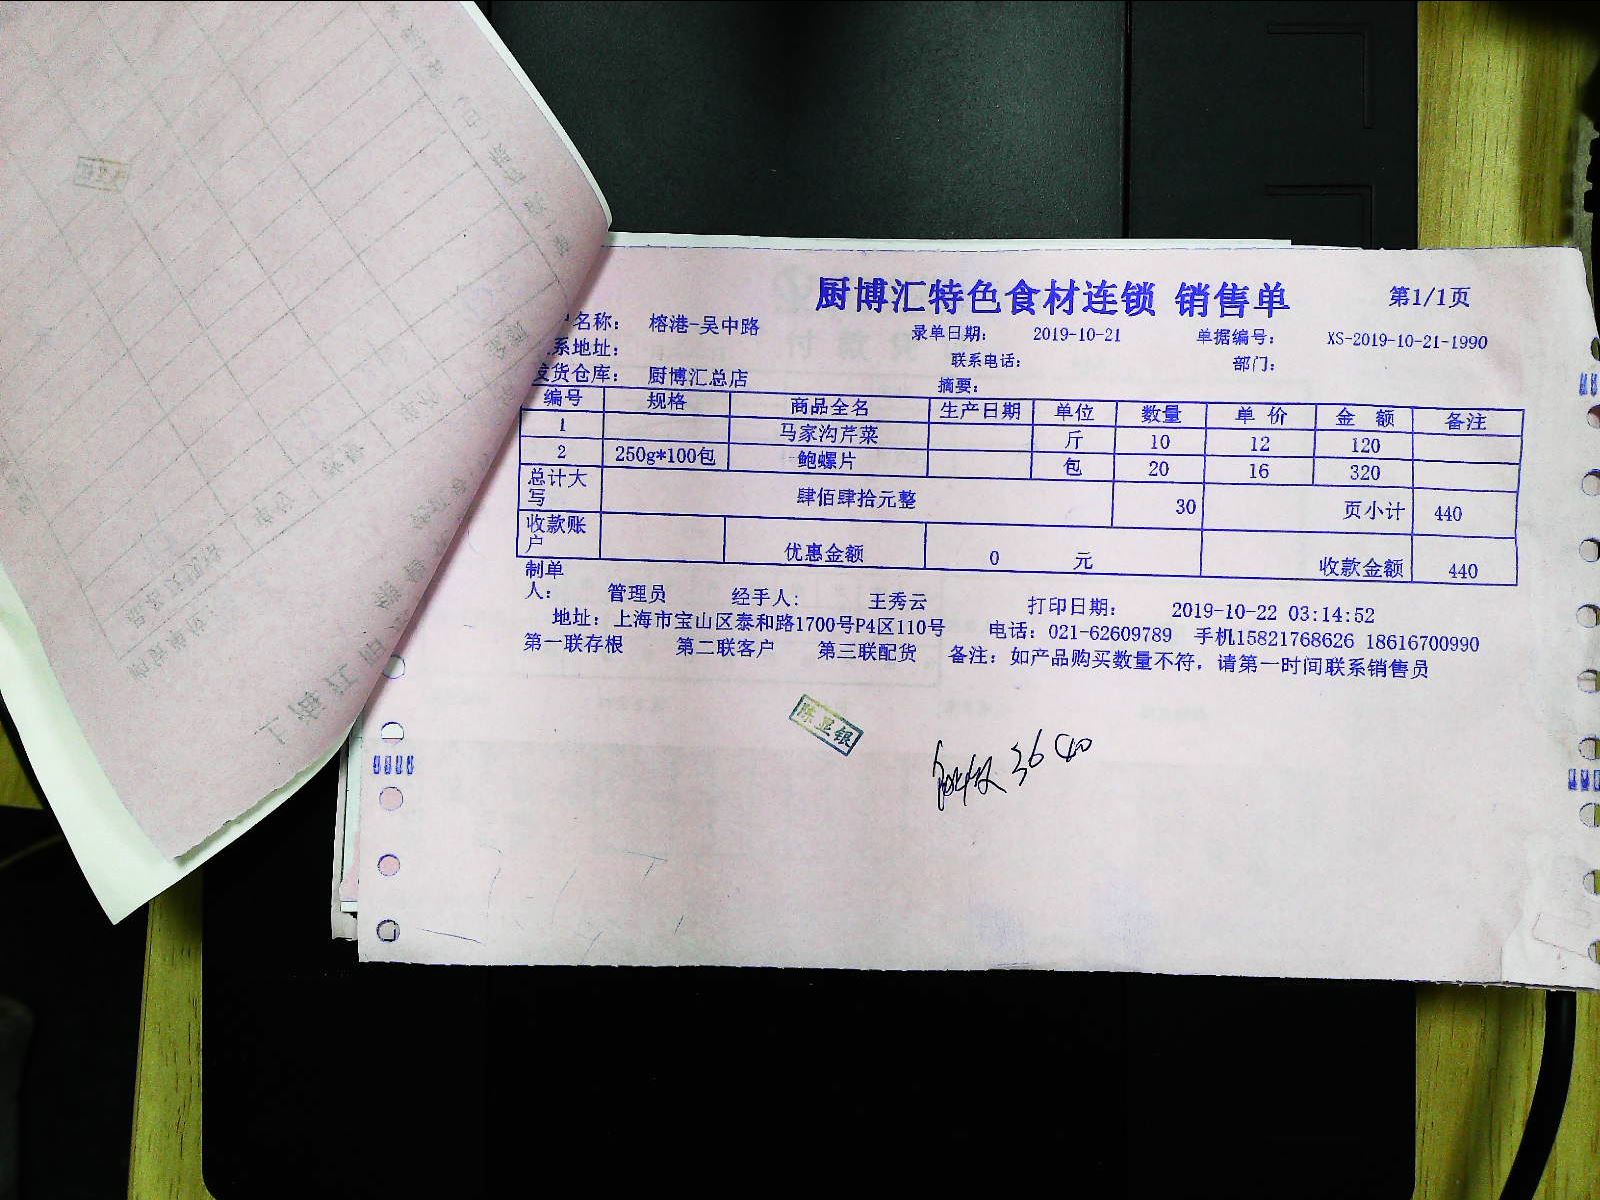 厨博汇特色食材连锁 销售单 第1/1页
名称: 榕港-吴中路 录单日期: 2019-10-21 单据编号: XS-2019-10-21-1990
系地址: 联系电话: 部门:
发货仓库: 厨博汇总店 摘要:
编号 规格 商品全名 生产日期 单位 数量 单 价 金 额 备注
1 马家沟芹菜 斤 10 12 120
2 250g*100包 鲍螺片 包 20 16 320
总计大写 肆佰肆拾元整 30 页小计 440
收款账户 优惠金额 0 元 收款金额 440
制单人: 管理员 经手人: 王秀云 打印日期: 2019-10-22 03:14:52
地址: 上海市宝山区泰和路1700号P4区110号 电话: 021-62609789 手机15821768626 18616700990
第一联存根 第二联客户 第三联配货 备注: 如产品购买数量不符, 请第一时间联系销售员
陈亚银